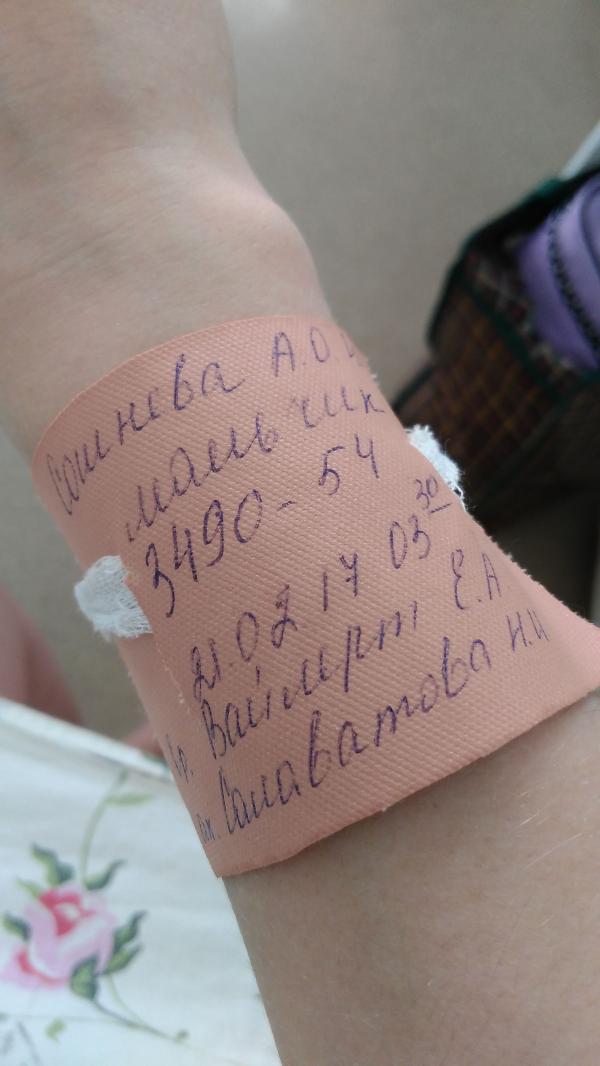 Сошнева А.О.
мальчик
3490-54
21.02 17 03 30
Вр. Ваймерт Е.А
Ак. Салаватова Н.И